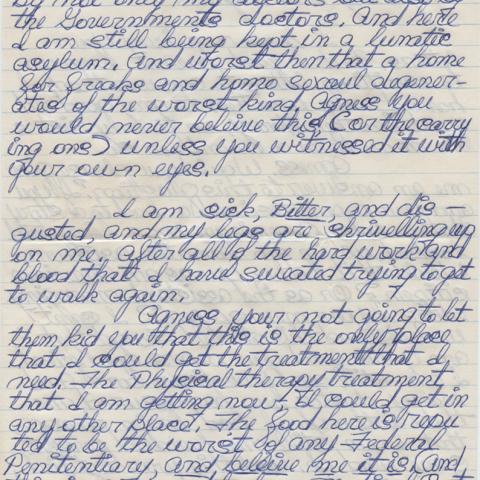 by not only my doctors but also by
the Governments doctors. And here
I am still being kept in a lunatic
asylum. And worst then that a home
for freaks and homo sexoul degener-
ates of the worst kind. Agness you
would never beleive this (or the carry
ing ons) unless you witnessed it with
your own eyes.
I am sick, Bitter, and dis-
gusted, and my legs are shrivelling up
on me, after all of the hard work and
blood that I have sweated trying to get
to walk again.
Agness, your not going to let
them kid you that this is the only place
that I could get the treatment that I
need. The Physical therapy treatment
that I am getting now, I could get in
any other place. The food here is repu
ted to be the worst of any Federal
Penitentiary, and, beleive me it is, (and